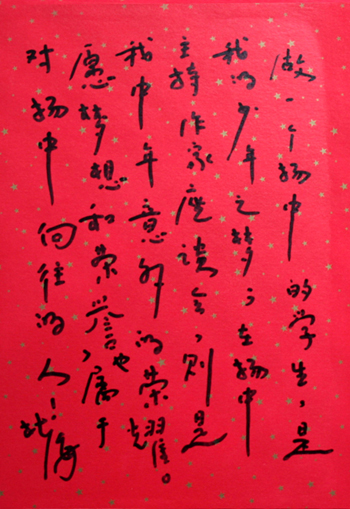 做一个扬中的学生，是
我的少年之梦；在扬中
主持作家座谈会，则是
我中年意外的荣耀。
愿梦想和荣誉，也属于
对扬中向往的人！